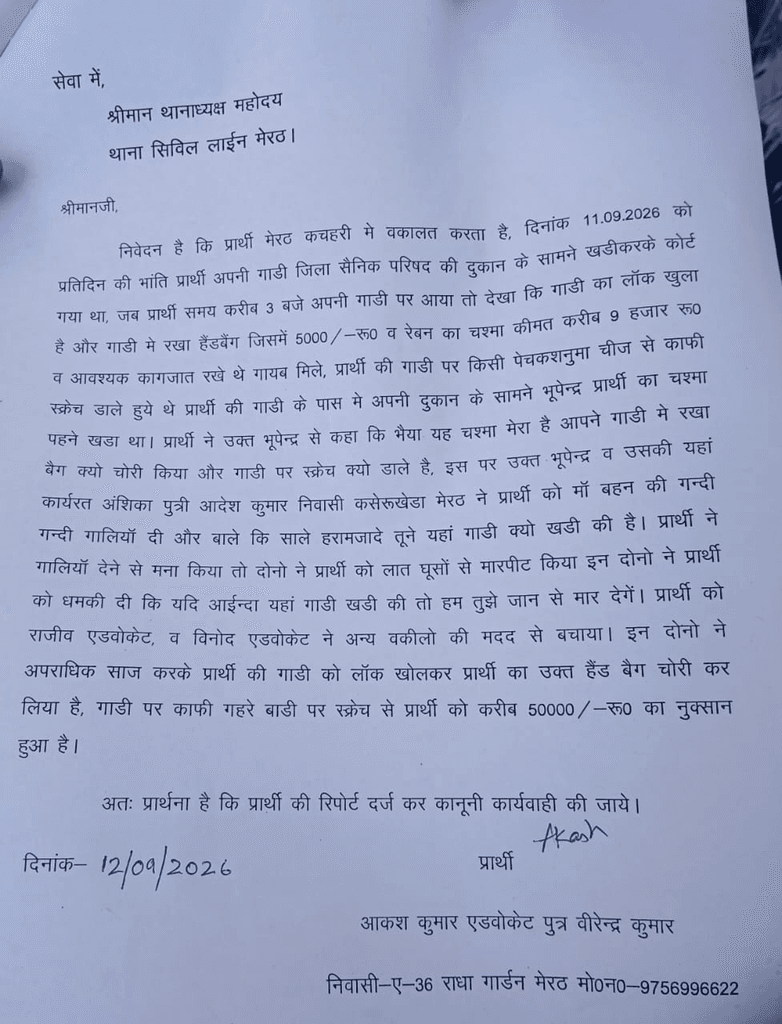 सेवा में,
श्रीमान थानाध्यक्ष महोदय
थाना सिविल लाईन मेरठ।
श्रीमानजी,
निवेदन है कि प्रार्थी मेरठ कचहरी मे वकालत करता है, दिनांक 11.09.2026 को
प्रतिदिन की भांति प्रार्थी अपनी गाडी जिला सैनिक परिषद की दुकान के सामने खडीकरके कोर्ट
गया था, जब प्रार्थी समय करीब 3 बजे अपनी गाडी पर आया तो देखा कि गाडी का लॉक खुला
है और गाडी मे रखा हैंडबैंग जिसमें 5000/-रू0 व रेबन का चश्मा कीमत करीब 9 हजार रू0
व आवश्यक कागजात रखे थे गायब मिले, प्रार्थी की गाडी पर किसी पेचकशनुमा चीज से काफी
स्क्रेच डाले हुये थे प्रार्थी की गाडी के पास मे अपनी दुकान के सामने भूपेन्द्र प्रार्थी का चश्मा
पहने खडा था। प्रार्थी ने उक्त भूपेन्द्र से कहा कि भैया यह चश्मा मेरा है आपने गाडी मे रखा
बैग क्यो चोरी किया और गाडी पर स्क्रेच क्यो डाले है, इस पर उक्त भूपेन्द्र व उसकी यहां
कार्यरत अंशिका पुत्री आदेश कुमार निवासी कसेरूखेडा मेरठ ने प्रार्थी को मॉ बहन की गन्दी
गन्दी गालियॉ दी और बाले कि साले हरामजादे तूने यहां गाडी क्यो खडी की है। प्रार्थी ने
गालियॉ देने से मना किया तो दोनो ने प्रार्थी को लात घूसों से मारपीट किया इन दोनो ने प्रार्थी
को धमकी दी कि यदि आईन्दा यहां गाडी खडी की तो हम तुझे जान से मार देगें। प्रार्थी को
राजीव एडवोकेट, व विनोद एडवोकेट ने अन्य वकीलो की मदद से बचाया। इन दोनो ने
अपराधिक साज करके प्रार्थी की गाडी को लॉक खोलकर प्रार्थी का उक्त हैंड बैग चोरी कर
लिया है, गाडी पर काफी गहरे बाडी पर स्क्रेच से प्रार्थी को करीब 50000/-रू0 का नुक्सान
हुआ है।
अतः प्रार्थना है कि प्रार्थी की रिपोर्ट दर्ज कर कानूनी कार्यवाही की जाये।
Akash
दिनांक- 12/09/2026
प्रार्थी
आकश कुमार एडवोकेट पुत्र वीरेन्द्र कुमार
निवासी-ए-36 राधा गार्डन मेरठ मो0न0-9756996622